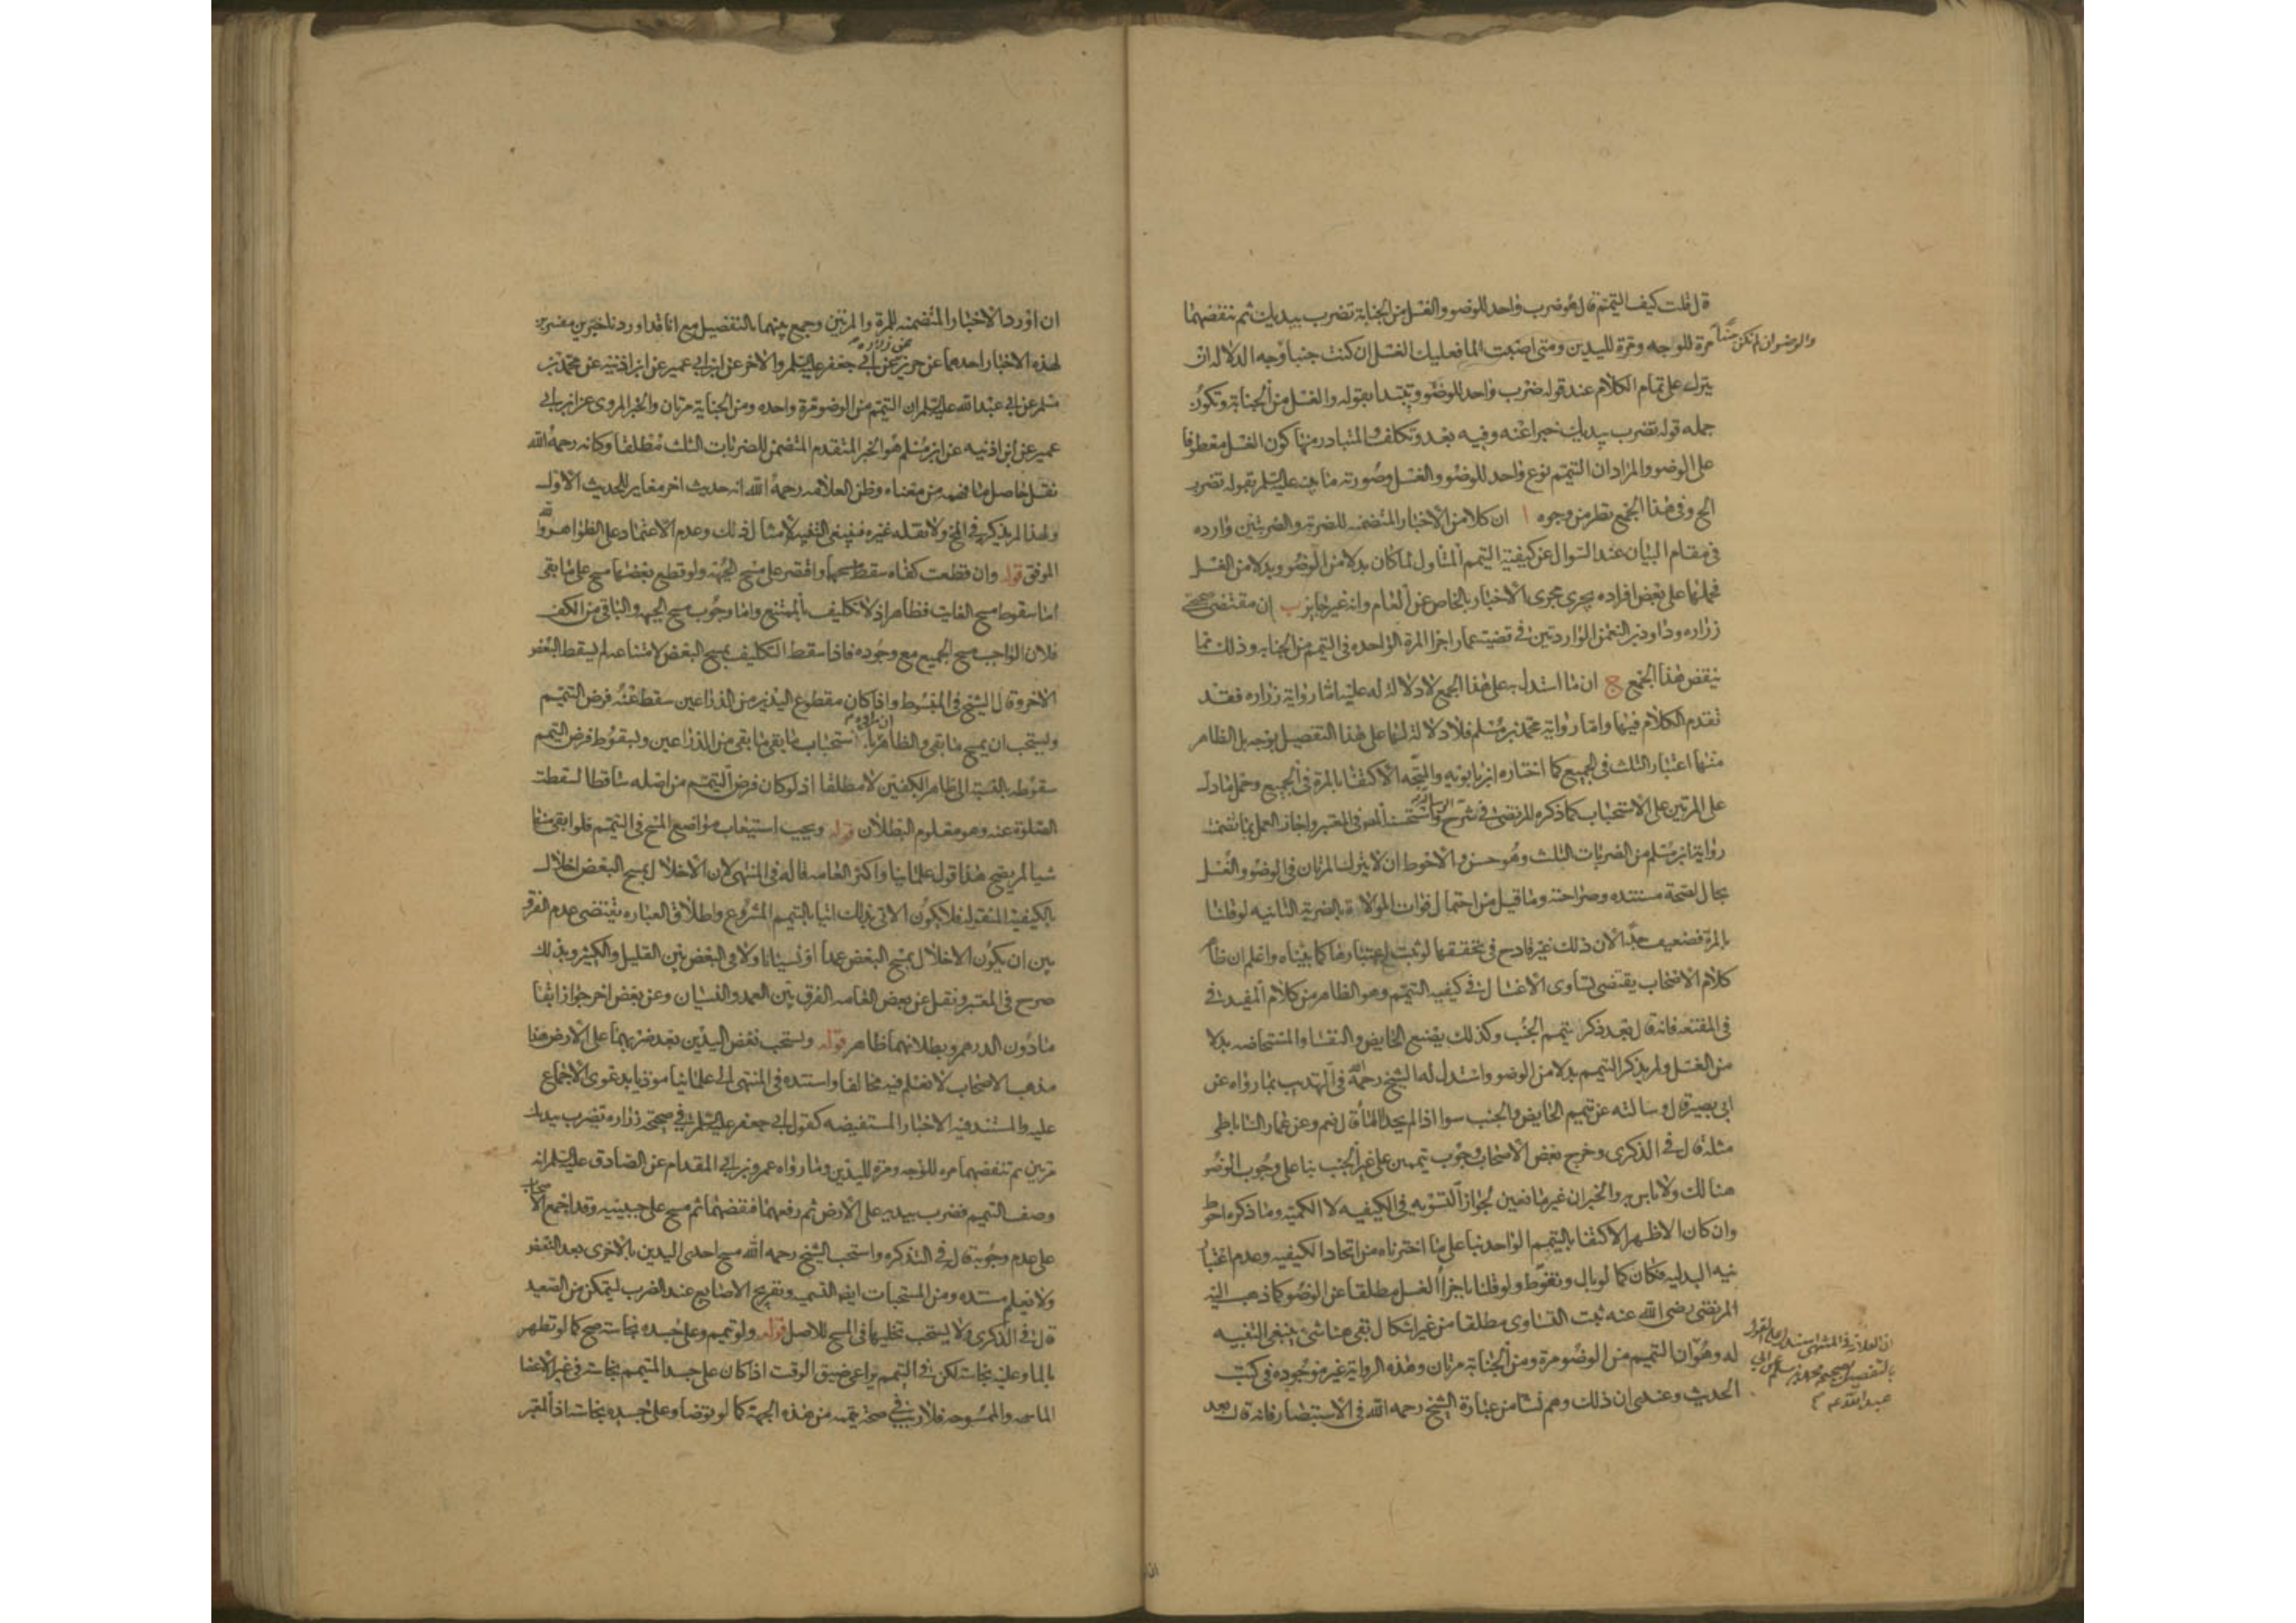 قال قلت كيف التيمم قال هو ضرب واحد للوضوء والغسل من الجنابة تضرب بيديك ثم تنفضهما
مرة للوجه ومرة لليدين ومتى اصبت الما فعليك الغسل ان كنت جنبا وجه الدلاله ان
والوضو ان لم تكن جنبا
يترك على تمام الكلام عند قوله ضرب واحد للوضوء ويبتدا بقوله والغسل من الجنابة وتكون
جمله قوله تضرب بيديك خبرا عنه وفيه بعد وتكلف والمتبادر منها كون الغسل معطوفا
على الوضوء والمراد ان التيمم نوع واحد للوضوء والغسل وصورته ما بينه عليه السلام بقوله تضرب
الخ وفي هذا الجمع نظر من وجوه ا ان كلا من الاخبار المتضمنه للضربة والضربتين وارده
في مقام البيان عند السوال عن كيفية التيمم المتناول لما كان بدلا من الوضوء وبدلا من الغسل
فحملها على بعض افراده يجري مجرى الاخبار بالخاص عن العام وانه غير جايز ب ان مقتضى صحيحتي
زراره وداود بن النعمن الواردتين في قضية عمار اجزا المرة الواحده في التيمم من الجنابه وذلك مما
ينقض هذا الجمع ج ان ما استدل به على هذا الجمع لا دلالة له عليه اما رواية زراره فقد
تقدم الكلام فيها واما رواية محمد بن مسلم فلا دلالة لها على هذا التفصيل بوجه بل الظاهر
منها اعتبار الثلث في الجميع كما اختاره ابن بابويه والمتجه الاكتفا بالمرة في الجميع وحمل ما دل
على المرتين على الاستحباب كما ذكره المرتضى في شرح الرسالة واستحسنه المص في المعتبر واجاز العمل بما تضمنته
رواية ابن مسلم من الضربات الثلث وهو حسن والاحوط ان لا يترك المرتان في الوضوء والغسل
بحال لصحة مستنده وصراحته وما قيل من احتمال فوات الموالاة بالضربة الثانيه لو قلنا
بالمرة فضعيف جدا لان ذلك غير قادح في تحققها لو ثبت اعتبارها كما بيناه واعلم ان ظا
كلام الاصحاب يقتضي تساوى الاغسال في كيفيه التيمم وهو الظاهر من كلام المفيد في
في المقنعه فانه قال بعد ذكر تيمم الجنب وكذلك يصنع الحايض والنفسا والمستحاضه بدلا
من الغسل ولم يذكر التيمم بدلا من الوضوء واستدل له الشيخ رحمه الله في التهذيب بما رواه عن
ابي بصير قال وسالته عن تيمم الحايض والجنب سوا اذا لم يجدا الما قال نعم وعن عمار الساباطي
مثله قال في الذكرى وخرج بعض الاصحاب وجوب تيممين على غير الجنب بنا على وجوب الوضو
هنالك ولا باس به والخبران غير مانعين لجواز التسويه في الكيفيه لا الكميه وما ذكره احوط
وان كان الاظهر الاكتفا بالتيمم الواحد بنا على ما اخترناه من اتحاد الكيفيه وعدم اعتبار
نيه البدليه فكان كما لو بال وتغوط ولو قلنا باجزا الغسل مطلقا عن الوضوء كما ذهب اليه
المرتضى رضي الله عنه ثبت التساوى مطلقا من غير اشكال بقى هنا شى ينبغي التنبيه
له وهو ان التيمم من الوضوء مرة ومن الجنابة مرتان وهذه الرواية غير موجوده في كتب
ان العلامة في المنتهى استدل على القول
بالتفصيل بصحيحه محمد بن مسلم عن ابي
عبد الله ع م
الحديث وعندى ان ذلك وهم نشا من عبارة الشيخ رحمه الله في الاستبصار فانه قال بعد
ان اورد الاخبار المتضمنه للمرة والمرتين وجمع بينهما بالتفصيل مع انا قد اوردنا خبرين مفسرين
لهذه الاخبار احدهما عن حريز عن زراره عن ابي جعفر عليه السلم والاخر عن ابن ابي عمير عن ابن اذنيه عن محمد بن
مسلم عن ابي عبد الله عليه السلم ان التيمم من الوضوء مرة واحده ومن الجنابة مرتان والخبر المروى عن ابن ابي
عمير عن ابن اذنيه عن ابن مسلم هو الخبر المتقدم المتضمن للضربات الثلث مطلقا وكانه رحمه الله
نقل حاصل ما فهمه من معناه وظن العلامه رحمه الله انه حديث اخر مغاير للحديث الاول
ولهذا لم يذكره في المخ ولا نقله غيره فينبغي التنبه لامثال ذلك وعدم الاعتماد على الظواهر والله
الموفق قوله وان قطعت كفاه سقط مسحهما واقتصر على مسح الجبهه ولو قطع بعضهما مسح على ما بقى
اما سقوط مسح الفايت فظاهر اذ لا تكليف بالممتنع واما وجوب مسح الجبهه والباقي من الكف
فلان الواجب مسح الجميع مع وجوده فاذا سقط التكليف بمسح البعض لامتناعه لم يسقط البعض
الاخر وقال الشيخ في المبسوط واذا كان مقطوع اليدين من الذراعين سقط عنه فرض التيمم
ويستحب ان يمسح ما بقى والظاهر ان مراده استحباب ما بقى ما بقى من الذراعين وبسقوط فرض التيمم
سقوطه بالنسبة الى ظاهر الكفين لا مطلقا اذ لو كان فرض التيمم من اصله ساقطا لسقطت
الصلوة عنه وهو معلوم البطلان قوله ويجب استيعاب مواضع المسح في التيمم فلو ابقى منها
شيا لم يصح هذا قول علمائنا واكثر العامه قاله في المنتهى لان الاخلال بمسح البعض اخلال
بالكيفية المنقوله فلا يكون الاتي بذلك اتيا بالتيمم المشروع واطلاق العباره يقتضي عدم الفرق
بين ان يكون الاخلال بمسح البعض عمدا او نسيانا ولا في البعض بين القليل والكثير وبذلك
صرح في المعتبر ونقل عن بعض العامه الفرق بين العمد والنسيان وعن بعض اخر جواز ابقا
ما دون الدرهم وبطلانهما ظاهر قوله ويستحب نفض اليدين بعد ضربهما على الارض هذا
مذهب الاصحاب لا نعلم فيه مخالفا واسنده في المنتهى الى علمائنا موذنا بدعوى الاجماع
عليه والمستند فيه الاخبار المستفيضه كقول ابي جعفر عليه السلم في صحيحة زراره تضرب بيديك
مرتين ثم تنفضهما مره للوجه ومرة لليدين وما رواه عمرو بن ابي المقدام عن الصادق عليه السلم انه
وصف التيمم فضرب بيديه على الارض ثم رفعهما فنفضهما ثم مسح على جبينيه وقد اجمع الاصحاب
على عدم وجوبه قال في التذكره واستحب الشيخ رحمه الله مسح احدى اليدين بالاخرى بعد النفض
ولا نعلم مستنده ومن المستحبات ايضا التسميه وتفريج الاصابع عند الضرب ليتمكن من الصعيد
قال في الذكرى ولا يستحب تخليلها في المسح للاصل قوله ولو تيمم وعلى جسده نجاسة صح كما لو تطهر
بالما وعليه نجاسة لكن في التيمم يراعى ضيق الوقت اذا كان على جسد المتيمم نجاسة في غير الاعضا
الماسحه والممسوحه فلا ريب في صحة تيممه من هذه الجهة كما لو توضا وعلى جسده نجاسة اذ المعتبر